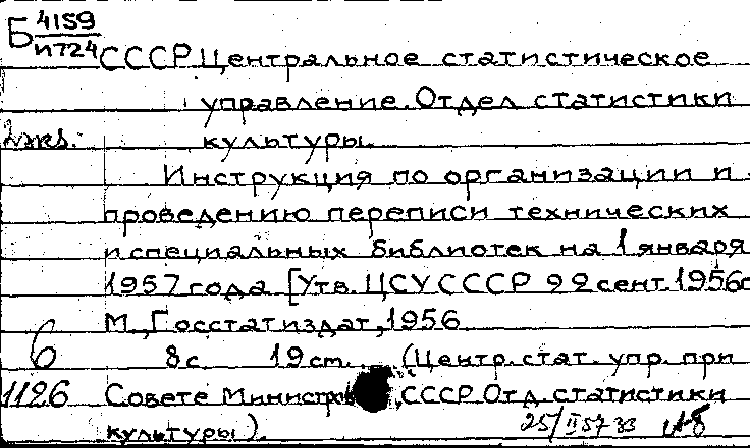 Б 4159
и724
СССР. Центральное статистическое
управление. Отдел статистики
2 экз. культуры.
Инструкция по организации и
проведению переписи технических
и специальных библиотек на 1 января
1957 года. [Утв. ЦСУ СССР 22 сент. 1956г
М., Госстатиздат, 1956
6 8 с. 19 см. (Центр. стат. упр. при
1126 Совете Министров СССР. Отд. статистики
культуры).
25/II 57